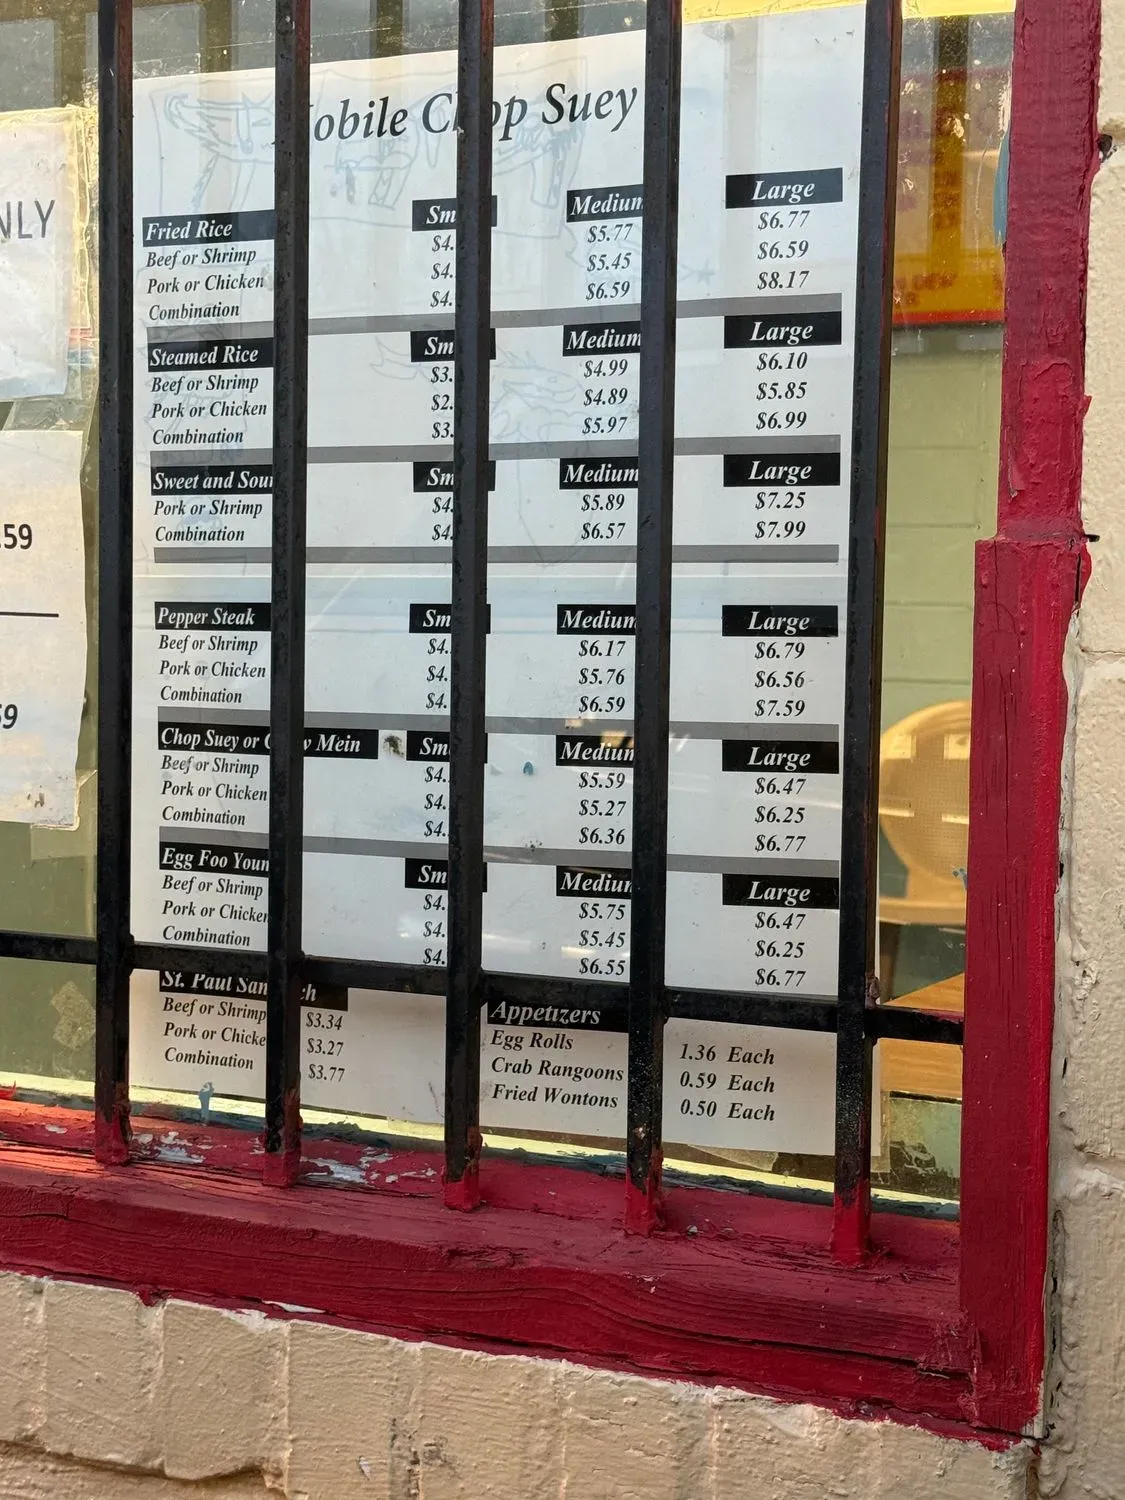 obile Chop Suey
Fried Rice Sm Medium Large
Beef or Shrimp $4. $5.77 $6.77
Pork or Chicken $4. $5.45 $6.59
Combination $4. $6.59 $8.17
Steamed Rice Sm Medium Large
Beef or Shrimp $3. $4.99 $6.10
Pork or Chicken $2. $4.89 $5.85
Combination $3. $5.97 $6.99
Sweet and Sour Sm Medium Large
Pork or Shrimp $4. $5.89 $7.25
Combination $4. $6.57 $7.99
Pepper Steak Sm Medium Large
Beef or Shrimp $4. $6.17 $6.79
Pork or Chicken $4. $5.76 $6.56
Combination $4. $6.59 $7.59
Chop Suey or C w Mein Sm Medium Large
Beef or Shrimp $4. $5.59 $6.47
Pork or Chicken $4. $5.27 $6.25
Combination $4. $6.36 $6.77
Egg Foo Youn Sm Medium Large
Beef or Shrimp $4. $5.75 $6.47
Pork or Chicken $4. $5.45 $6.25
Combination $4. $6.55 $6.77
St. Paul San ch
Beef or Shrimp $3.34
Pork or Chicke $3.27
Combination $3.77
Appetizers
Egg Rolls 1.36 Each
Crab Rangoons 0.59 Each
Fried Wontons 0.50 Each
NLY
.59
59